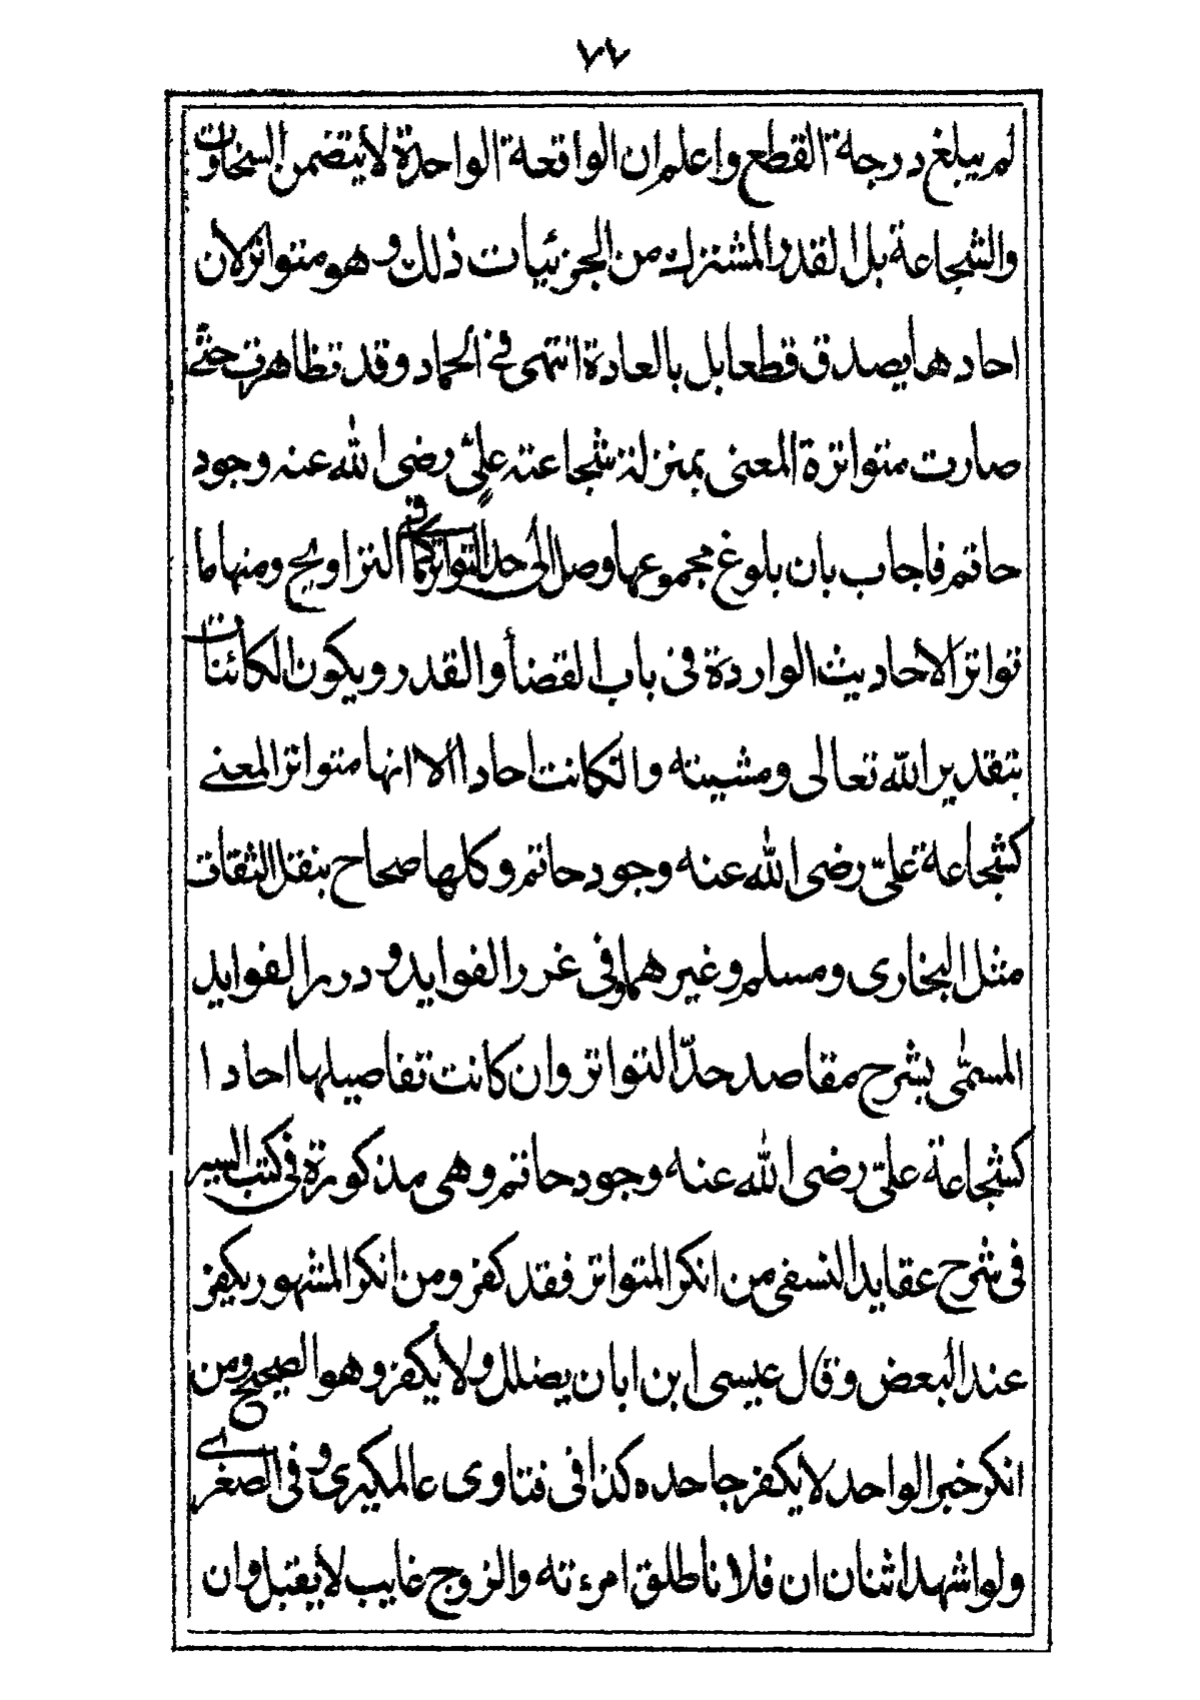 ٧٧
لم يبلغ درجة القطع واعلم ان الواقعة الواحدة لا يتضمن السخاوت
والشجاعة بل القدر المشترك من الجزئيات ذلك وهو متواتر لان
احادها يصدق قطعا بل بالعادة انتهى في الحماد وقد تظاهرت حتى
صارت متواترة المعنى بمنزلة شجاعته علىّ رضى الله عنه وجود
حاتم فاجاب بان بلوغ مجموعها وصل الى حد التواتر كما في التراويح ومنها ما
تواتر الاحاديث الواردة فى باب القضأ والقدر ويكون الكائنات
بتقدير الله تعالى ومشيته والكانت احادا الا انها متواتر المعنے
كشجاعة علىّ رضى الله عنه وجود حاتم وكلها صحاح بنقل الثقات
مثل البخارى ومسلم وغيرهما وفى غرر الفوايد و درر الفوايد
المسمّى بشرح مقاصد حدّ التواتر وان كانت تفاصيلها احادا
كشجاعة علىّ رضى الله عنه وجود حاتم وهى مذكورة فى كتب السير
فى شرح عقايد النسفى من انكر المتواتر فقد كفر ومن انكر المشهور يكفر
عند البعض وقال عيسى ابن ابان يضلل ولا يكفر وهو الصحيح ومن
انكر خبر الواحد لا يكفر جاحده كذا فى فتاوى عالمكيرى و فى الصغرے
ولو اشهد اثنان ان فلانا طلق امرءته والزوج غايب لا يقبل وان